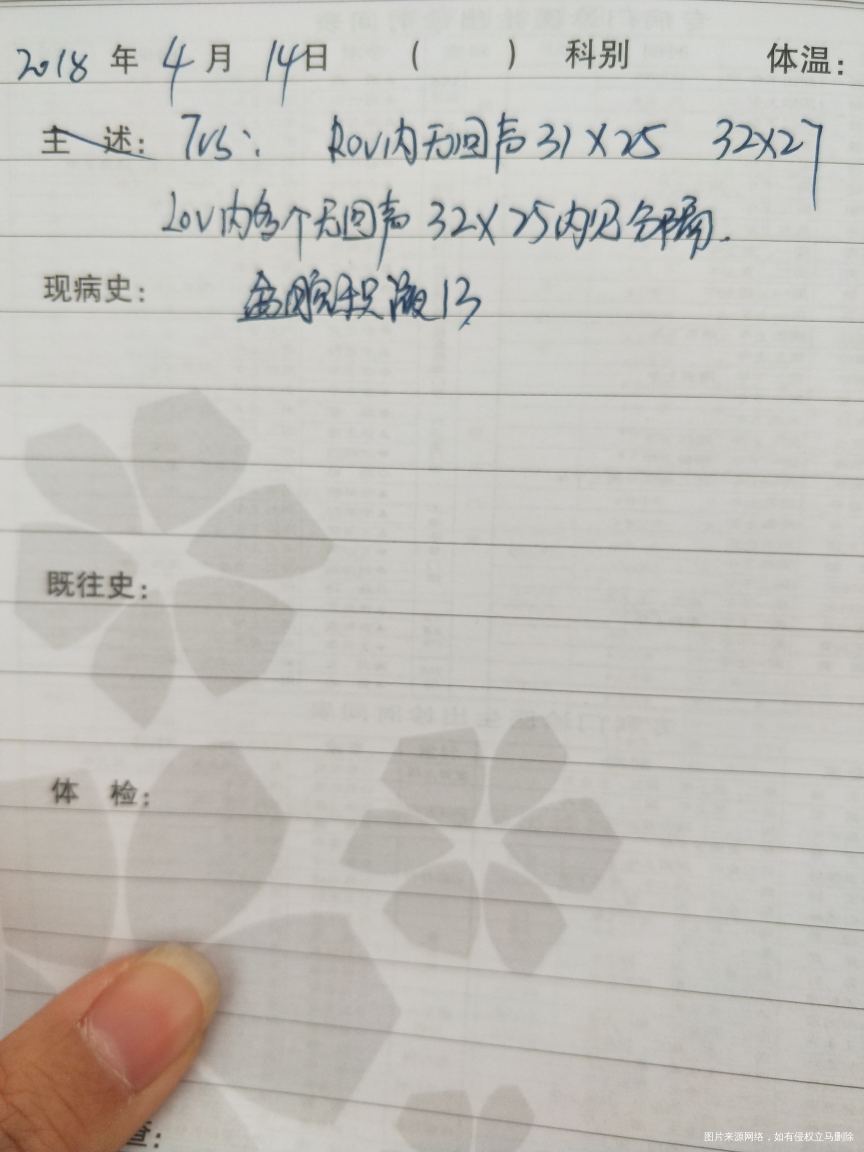 2018 年 4 月 14日 （ ） 科别 体温：
主 述： TVS： ROV内无回声31×25 32×27
LOV内多个无回声 32×25内见分隔.
现病史： 盆腔积液13
既往史：
体 检：
查：
图片来源网络，如有侵权立马删除